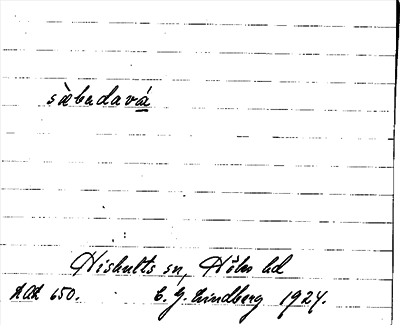 sàbadavá
Hishults sn, Höks hd
AOA 650. C. G. Lindberg 1924.